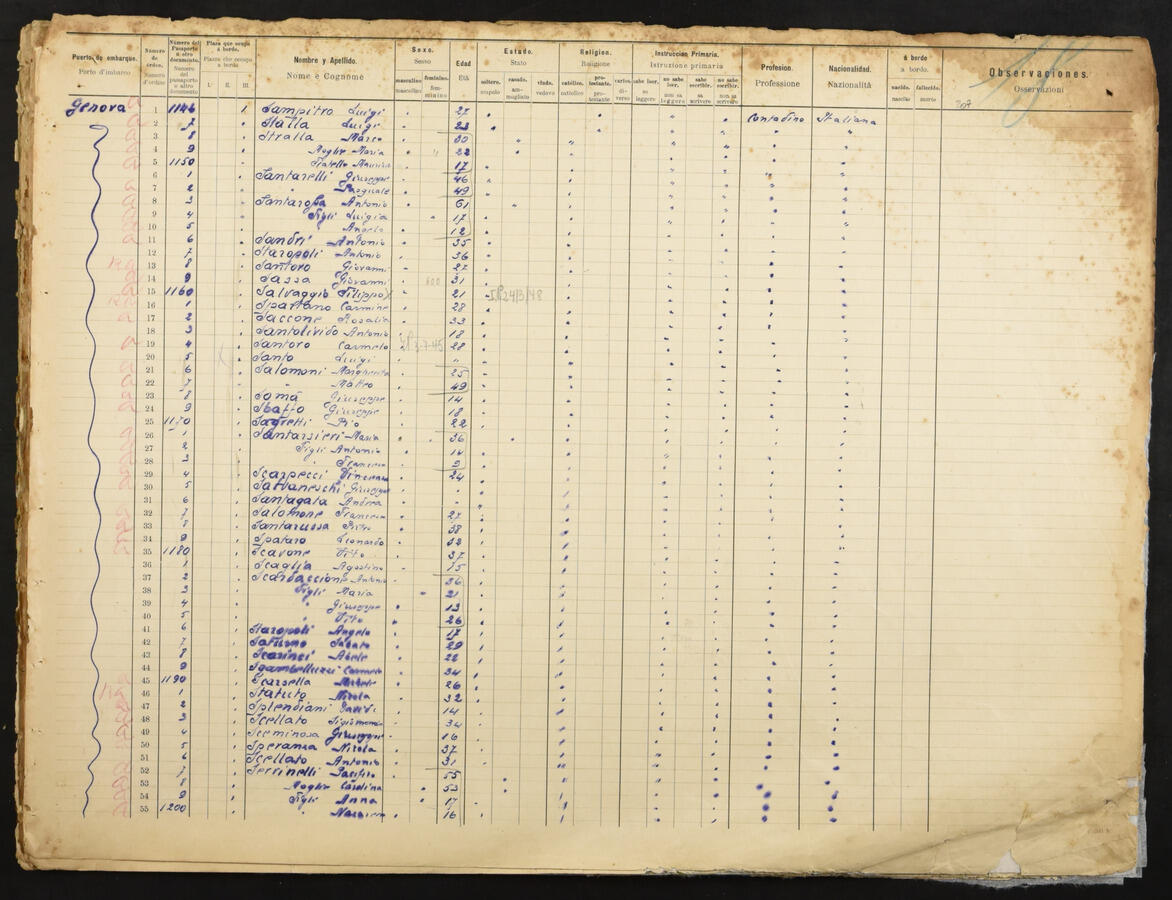 Puerto de embarque. Porto d'imbarco
Número de órden. Numero d'ordine
Número del Pasaporte ú otro documento. Numero del passaporto o altro documento
Plaza que ocupa á bordo. Piazza che occupa a bordo I. II. III.
Nombre y Apellido. Nome e Cognome
Sexo. Sesso masculino femenino. maschile femminino
Edad Età
Estado. Stato soltero. casado. viudo. scapolo ammogliato vedovo
Religion. Religione católico. protestante. cattolico protestante
Instruccion Primaria. Istruzione primaria sabe leer. no sabe leer. sabe escribir. no sabe escribir. sa leggere non sa leggere sa scrivere non sa scrivere
Profesion. Professione
Nacionalidad. Nazionalità
á bordo a bordo. nacido. fallecido. nascite morte
Observaciones. Osservazioni
Genova 1 1146 Sampitro Luigi 27 Contadino Italiana
2 7 Stalla Luigi 23
3 8 Stralla Marco 30
4 9 Moglie Maria 22
5 1150 Fratello 17
6 1 Santarelli Giuseppe 46
7 2 " Pasquale 49
8 3 Antonio 61
9 4 Figli Luigia 17
10 5 Angelo 12
11 6 Sandri Antonio 35
12 7 Staropoli Antonio 36
13 8 Santoro Giovanni 27
14 9 Sassa Giovanni 31
15 1160 Salvaggio Filippo 21
16 1 Carmine 28
17 2 Saccone Rosalia 33
18 3 Santolivido Antonio 18
19 4 Santoro Carmelo 28
20 5 Santo Luigi "
21 6 Salomoni Margherita 25
22 7 " Matteo 49
23 8 Somá Giuseppe 14
24 9 Sbaffo Giuseppe 18
25 1170 Sagretti Pio 22
26 1 Santarsieri Maria 36
27 2 Figli Antonio 14
28 3 " Francesco 9
29 4 Scarpecci Vincenzo 24
30 5 Salvaneschi Giuseppe
31 6 Santagata Andrea
32 7 Salomone Francesco 27
33 8 Santarussa Pietro 38
34 9 Spataro Leonardo 32
35 1180 Scavone Vito 37
36 1 Scaglia Agostino 15
37 2 Scardaccione Antonio 36
38 3 Figli Maria 21
39 4 " Giuseppe 13
40 5 " Vito 26
41 6 Staropoli Angelo 17
42 7 Saturno 29
43 8 Scarinci Adele 22
44 9 Sgambelluzzi Carmelo 34
45 1190 Scarsella Michele 26
46 1 Statuto Nicola 32
47 2 Splendiani 14
48 3 Scellato 34
49 4 Sceminosa Giuseppe 16
50 5 Speranza Nicola 37
51 6 Scellato Antonio 31
52 7 Servinelli Pacifico 55
53 8 Moglie Carolina 53
54 9 Figli Anna 17
55 1200 " 16